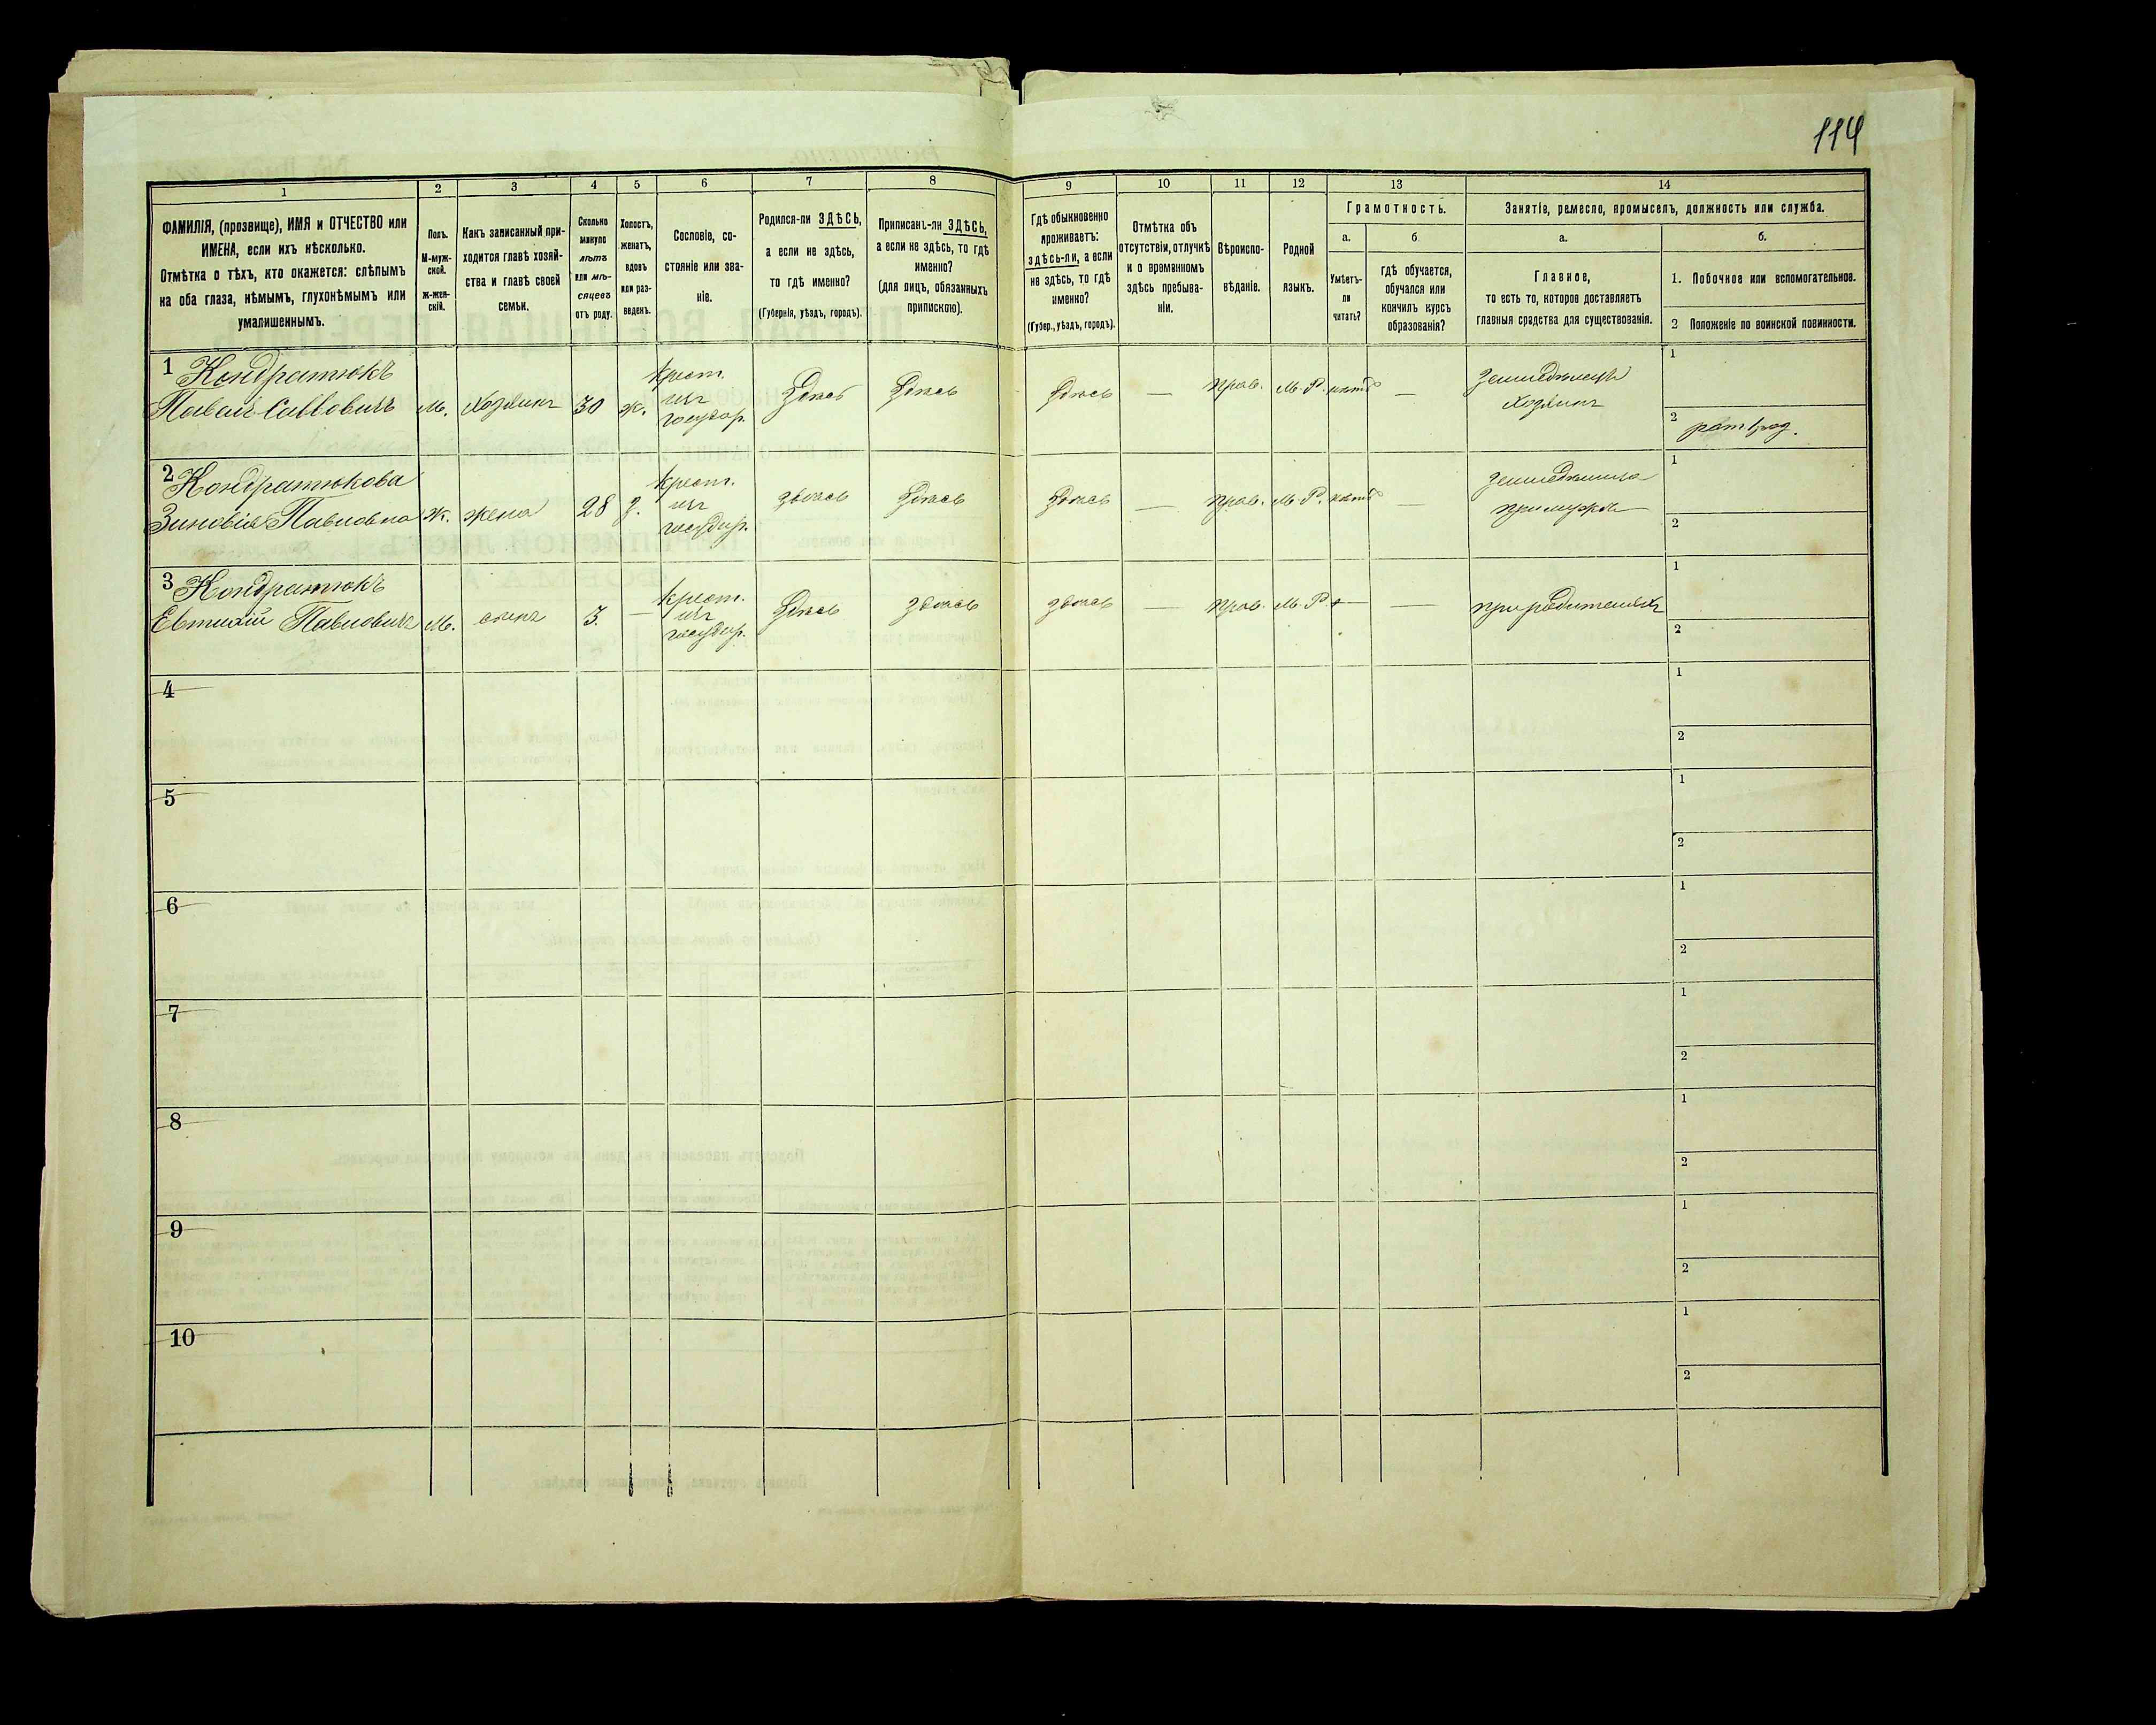 114
1 2 3 4 5 6 7 8 9 10 11 12 13 14
ФАМИЛІЯ, (прозвище), ИМЯ и ОТЧЕСТВО или
ИМЕНА, если ихъ нѣсколько.
Отмѣтка о тѣхъ, кто окажется: слѣпымъ
на оба глаза, нѣмымъ, глухонѣмымъ или
умалишеннымъ.
Полъ.
М-муж-
ской.
ж-жен-
скій.
Какъ записанный при-
ходится главѣ хозяй-
ства и главѣ своей
семьи.
Сколько
минуло
лѣтъ
или мѣ-
сяцевъ
отъ роду.
Холостъ,
женатъ,
вдовъ
или раз-
веденъ.
Сословіе, со-
стояніе или зва-
ніе.
Родился-ли ЗДѢСЬ,
а если не здѣсь,
то гдѣ именно?
(Губернія, уѣздъ, городъ).
Приписанъ-ли ЗДѢСЬ,
а если не здѣсь, то гдѣ
именно?
(для лицъ, обязанныхъ
припискою).
Гдѣ обыкновенно
проживаетъ:
здѣсь-ли, а если
не здѣсь, то гдѣ
именно?
(Губер., уѣздъ, городъ).
Отмѣтка объ
отсутствіи, отлучкѣ
и о временномъ
здѣсь пребыва-
ніи.
Вѣроиспо-
вѣданіе.
Родной
языкъ.
Грамотность.
а.
Умѣетъ-
ли
читать?
б.
гдѣ обучается,
обучался или
кончилъ курсъ
образованія?
Занятіе, ремесло, промыселъ, должность или служба.
а.
Главное,
то есть то, которое доставляетъ
главныя средства для существованія.
б.
1. Побочное или вспомогательное.
2 Положеніе по воинской повинности.
1 Кондратюкъ
Павелъ Савовичъ м. хозяинъ 30 ж.
крест.
изъ
государ.
Здѣсь Здѣсь Здѣсь — прав. М. Р. нѣтъ —
земледѣлецъ
хозяинъ
1
2 рат 1 раз.
2 Кондратюкова
Зиновія Павловна ж. жена 28 з.
крест.
изъ
государ.
здѣсь Здѣсь Здѣсь — прав. М. Р. нѣтъ —
земледѣлица
при мужѣ
1
2
3 Кондратюкъ
Евтихій Павловичъ м. сынъ 3. —
крест.
изъ
государ.
Здѣсь здѣсь здѣсь — прав. М. Р. — —
при родителяхъ
1
2
4
1
2
5
1
2
6
1
2
7
1
2
8
1
2
9
1
2
10
1
2